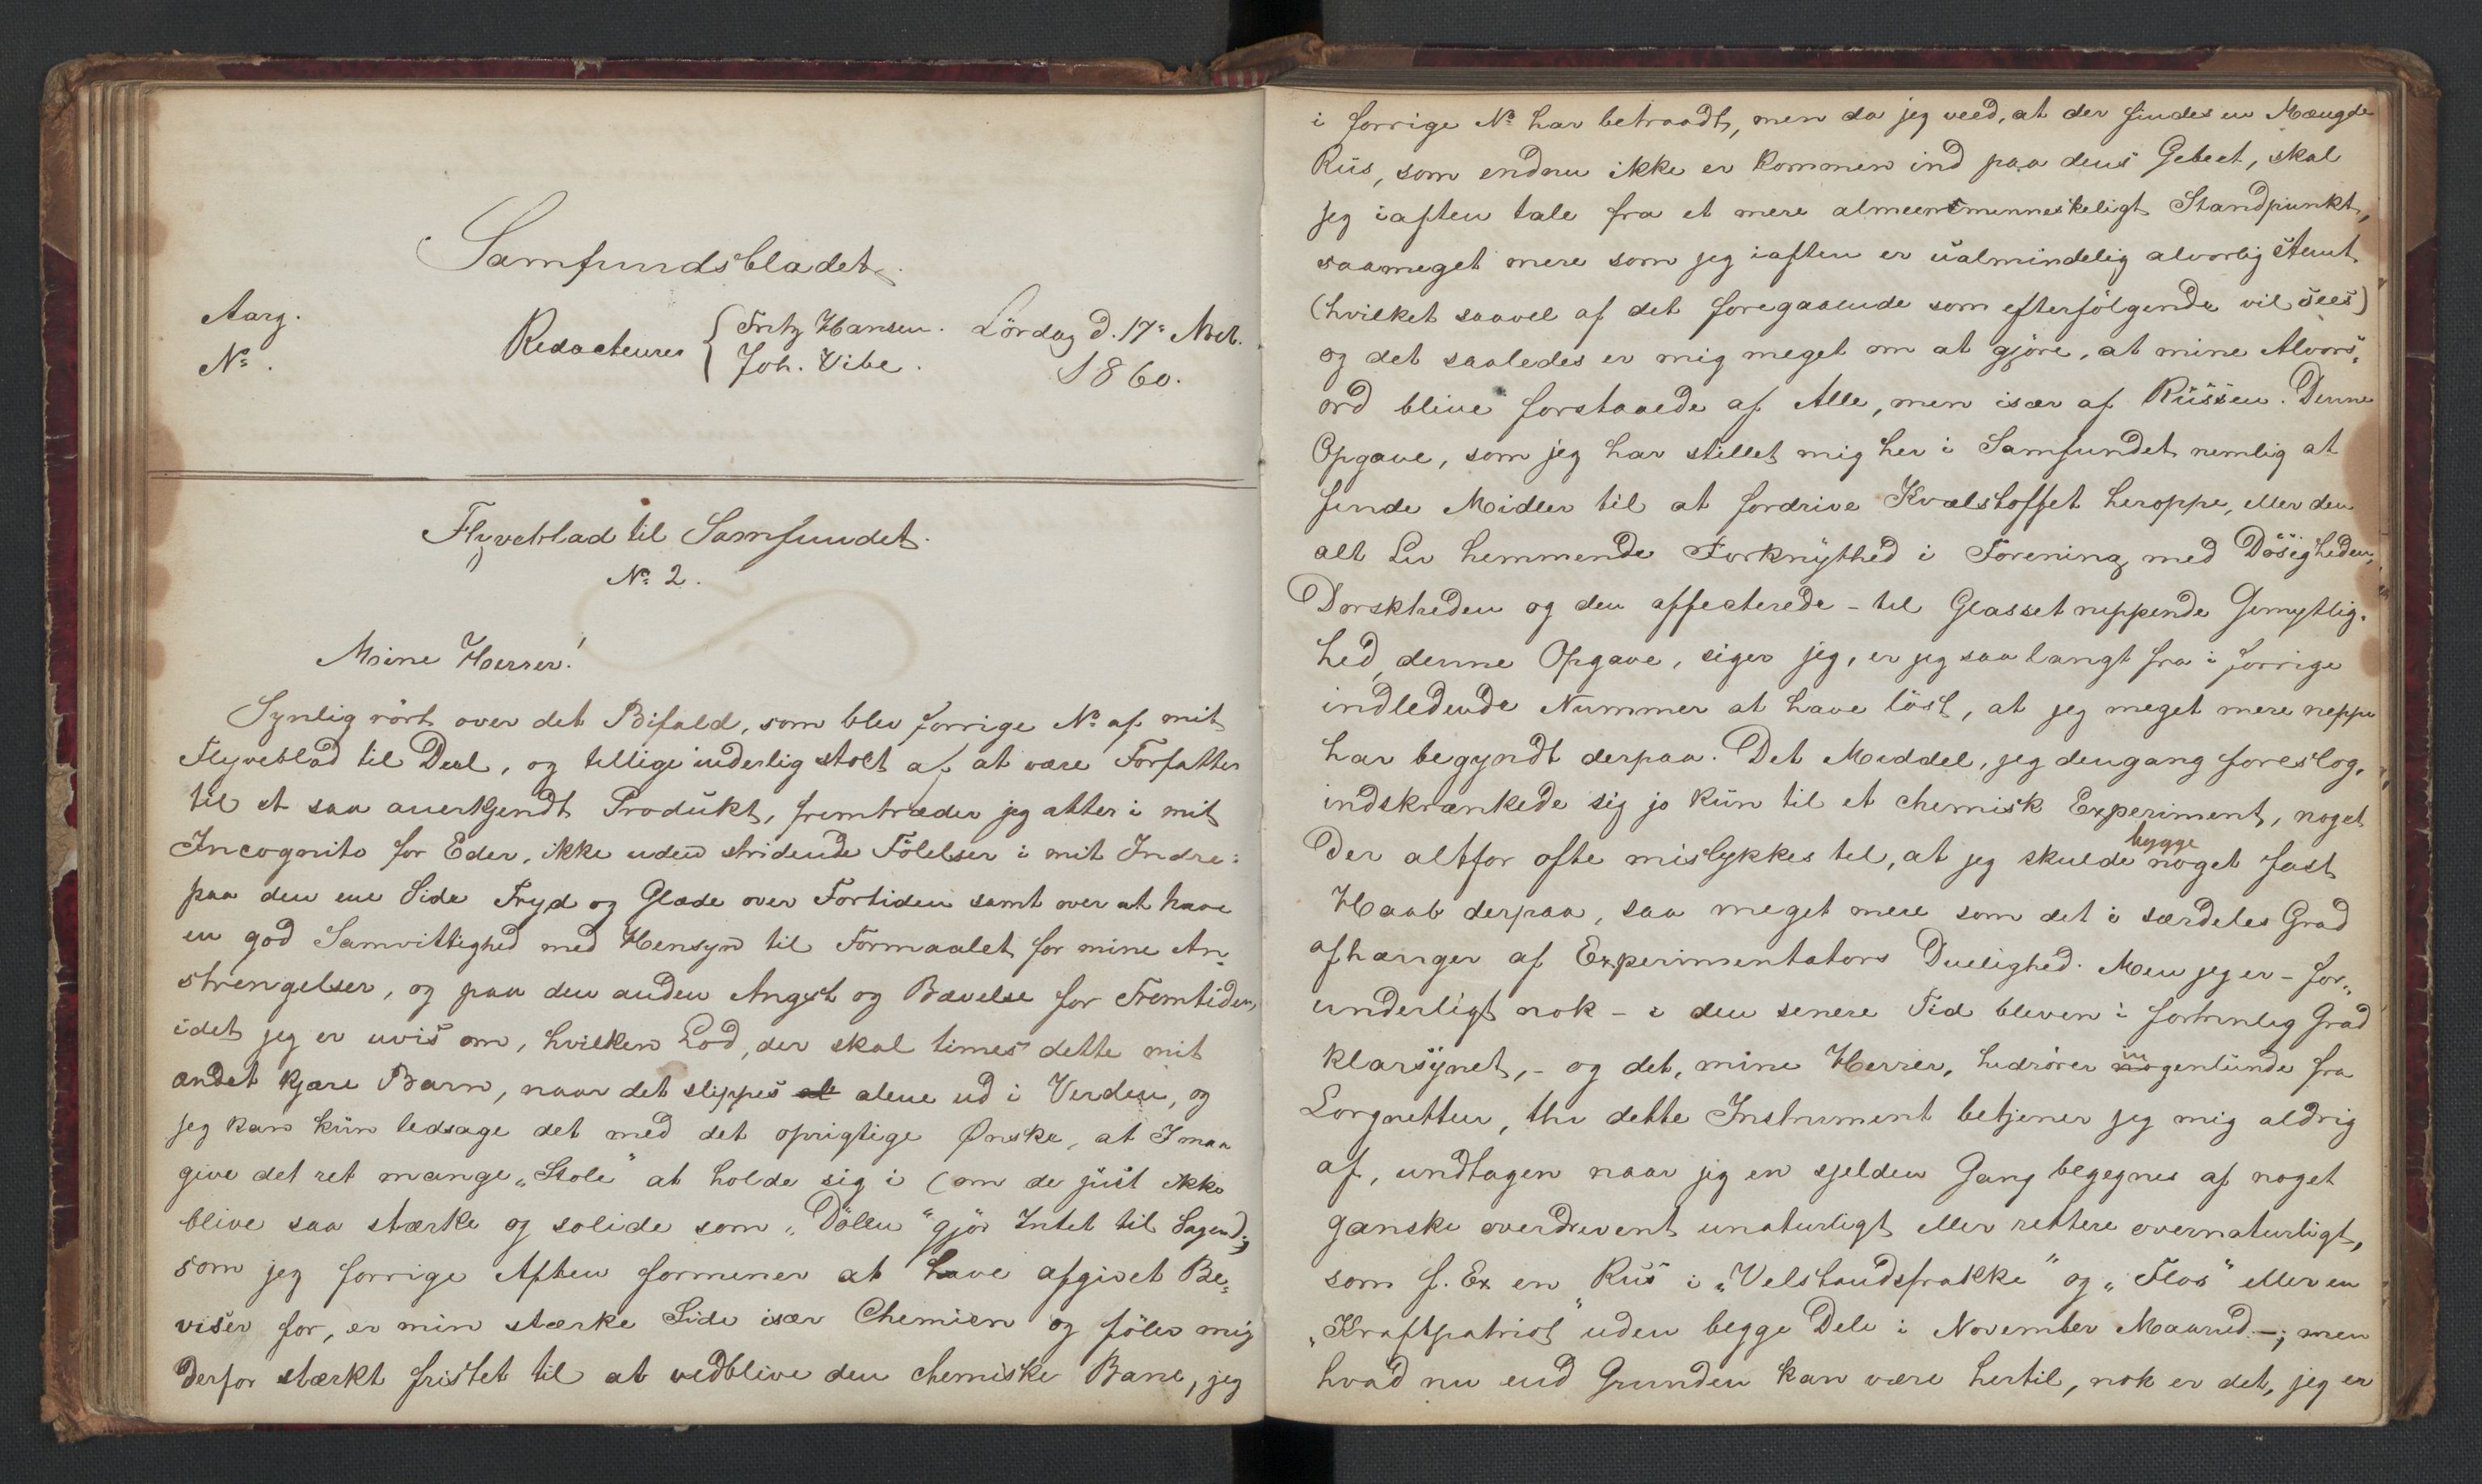 Samfundsbladet.
Aarg.
No.
Redacteurer { Fritz Hansen.
Joh. Vibe.
Lördag d. 17de Nov.
1860.
Flyveblad til Samfundet.
No 2.
Mine Herrer!
Synlig rört over det Bifald, som blev forrige No af mit
Flyveblad til Deel, og tillige inderlig stolt af at være Forfatter
til et saa anerkjendt Produkt, fremtræder jeg atter i mit
Incognito for Eder, ikke uden stridende Fölelser i mit Indre:
paa den ene Side Fryd og Glæde over Fortiden samt over at have
en god Samvittighed med Hensyn til Formaalet for mine An-
strengelser, og paa den anden Angst og Bævelse for Fremtiden,
idet jeg er uvis om, hvilken Lod, der skal times dette mit
andet kjære Barn, naar det slippes alene ud i Verden, og
jeg kan kun ledsage det med det oprigtige Ønske, at I maa
give det ret mange „Stole“ at holde sig i (om de just ikke
blive saa stærke og solide som „Dölen“ gjör Intet til Sagen);
som jeg forrige Aften formener at have afgivet Be-
viser for, er min stærke Side især Chemien og föler mig
derfor stærkt fristet til at vedblive den chemiske Bane, jeg
i forrige No har betraadt, men da jeg veed, at der findes en Mængde
Rus, som endnu ikke er kommen ind paa dens Gebeet, skal
jeg iaften tale fra et mere almeenmenneskeligt Standpunkt,
saameget mere som jeg iaften er ualmindelig alvorlig stemt
(hvilket saavel af det foregaaende som efterfölgende vil sees)
og det saaledes er mig meget om at gjöre, at mine Alvors-
ord blive forstaaede af Alle, men især af Russen. Denne
Opgave, som jeg har stillet mig her i Samfundet nemlig at
finde Midler til at fordrive Kvælstoffet heroppe, eller den
alt Liv hemmende Forknythed i Forening med Dösigheden,
Dorskheden og den affecterede - til Glasset nippende Gemytlig-
hed, denne Opgave, siger jeg, er jeg saa langt fra i forrige
indledende Nummer at have löst, at jeg meget mere neppe
har begyndt derpaa. Det Middel, jeg dengang foreslog,
indskrænkede sig jo kun til et chemisk Experiment, noget
der altfor ofte mislykkes til, at jeg skulde bygge noget fast
Haab derpaa, saa meget mere som det i særdeles Grad
afhænger af Experimentators Duelighed. Men jeg er - for-
underligt nok - i den senere Tid bleven i fortrinlig Grad
klarsynet, - og det, mine Herrer, hidrörer ingenlunde fra
Lorgnetten, thi dette Instrument betjener jeg mig aldrig
af, undtagen naar jeg en sjelden Gang begegnes af noget
ganske overdrevent unaturligt eller rettere overnaturligt,
som f. Ex en „Rus“ i „Velstandsfrakke“ og „Flos“ eller en
„Kraftpatriot“ uden begge Dele i November Maaned -; men
hvad nu end Grunden kan være hertil, nok er det, jeg er